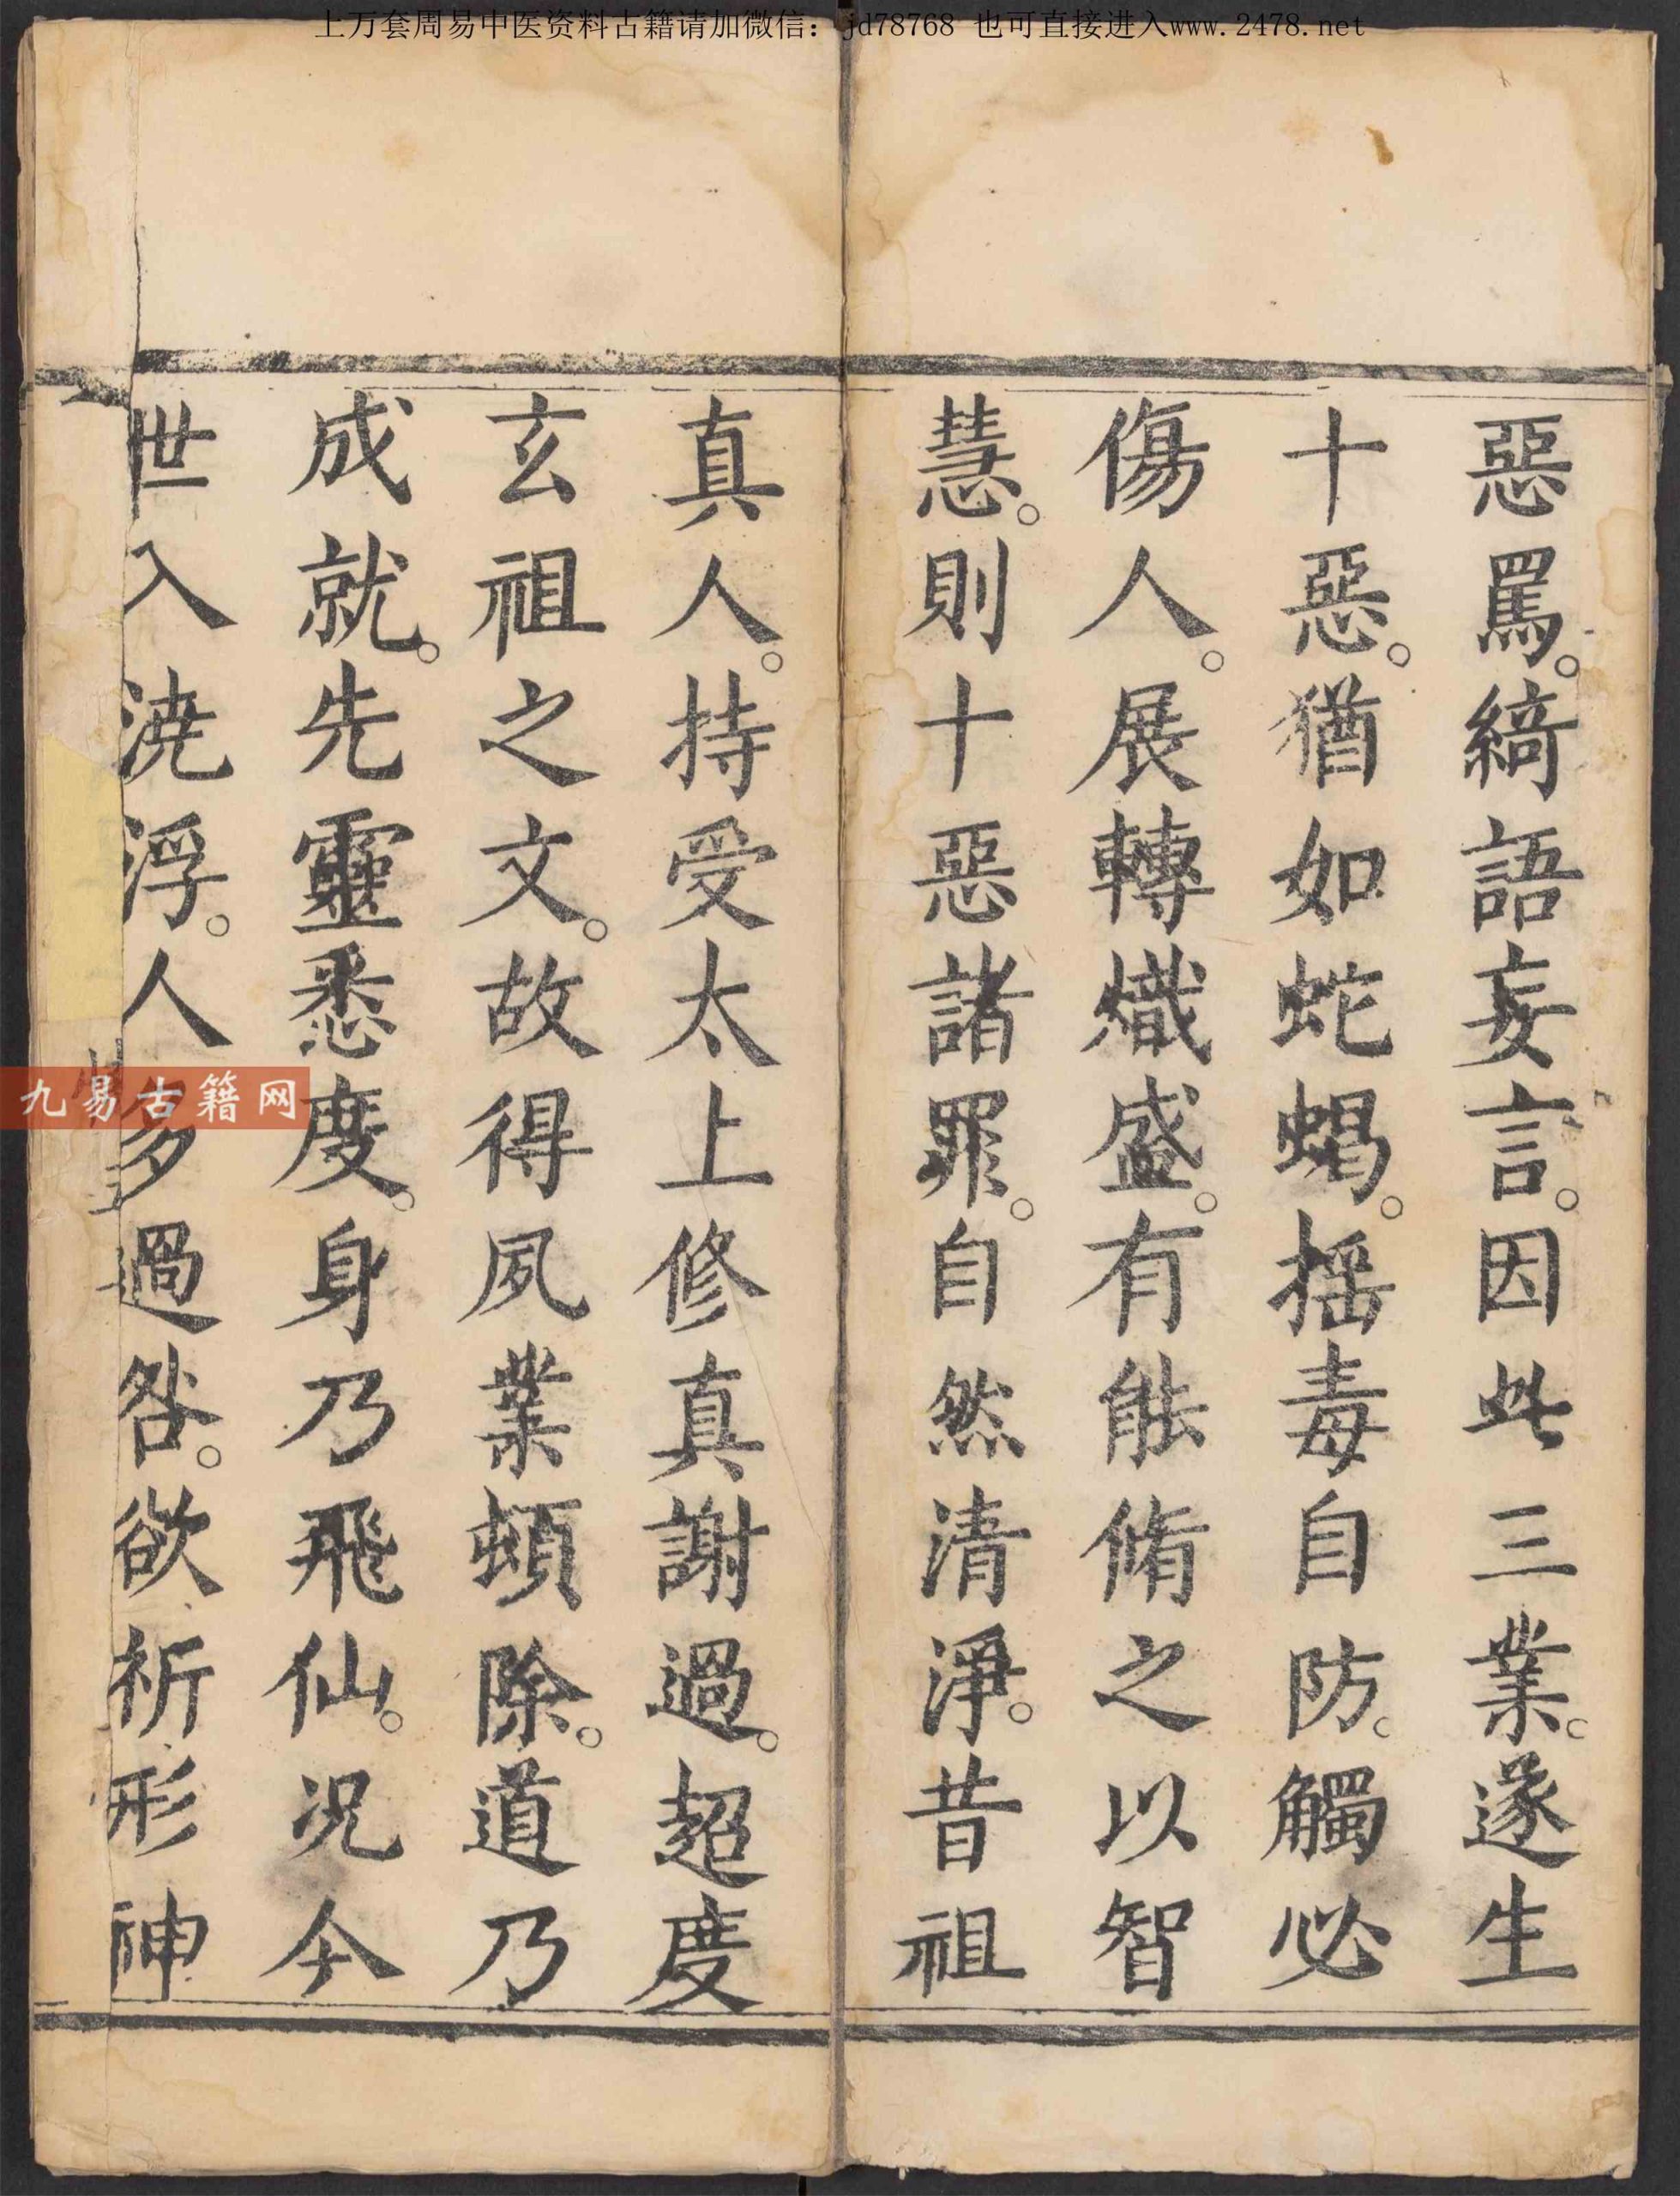 上万套周易中医资料古籍请加微信：jd78768 也可直接进入www.2478.net
惡罵。綺語妄言。因此三業。遂生
十惡。猶如蛇蝎。揺毒自防。觸必
傷人。展轉熾盛。有能脩之以智
慧。則十惡諸罪。自然清淨。昔祖
真人。持受太上修真謝過。超度
玄祖之文。故得夙業頓除。道乃
成就。先靈悉度。身乃飛仙。况今
世入澆浮。人多過咎。欲祈形神
九易古籍网